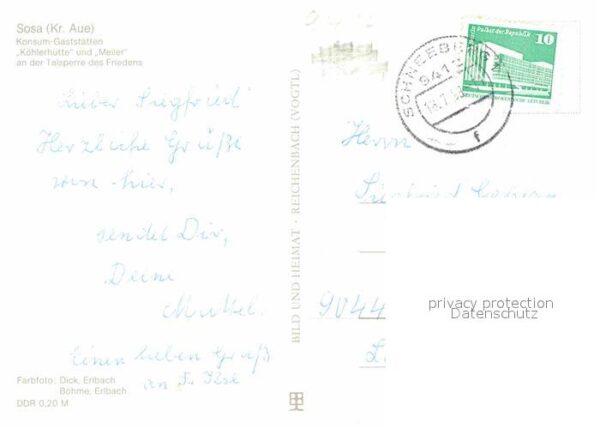 Sosa (Kr. Aue)
Konsum-Gaststätten
„Köhlerhütte" und „Meiler"
an der Talsperre des Friedens
Lieber Siegfried
Herzliche Grüße
von hier,
sendet Dir,
Deine
Muttel.
Einen lieben Gruß
an
Farbfoto: Dick, Erlbach
Böhme, Erlbach
DDR 0,20 M
BILD UND HEIMAT · REICHENBACH (VOGTL)
Palast der Republik
10
DEUTSCHE DEMOKRATISCHE REPUBLIK
SCHNEEBERG
9412
f
Herrn
9044
privacy protection
Datenschutz